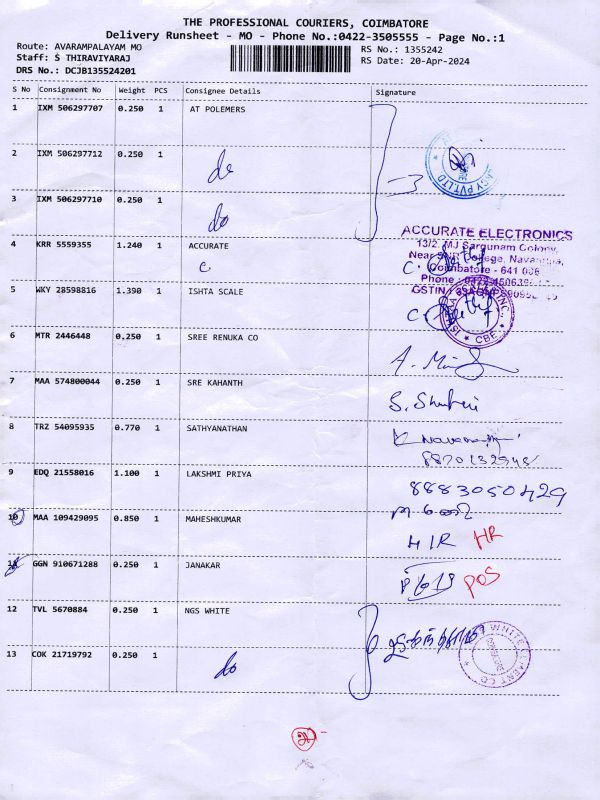 THE PROFESSIONAL COURIERS, COIMBATORE
Delivery Runsheet - MO - Phone No.:0422-3505555 - Page No.:1
Route: AVARAMPALAYAM MO RS No.: 1355242
Staff: S THIRAVIYARAJ RS Date: 20-Apr-2024
DRS No.: DCJB135524201
S No Consignment No Weight PCS Consignee Details Signature
1 IXM 506297707 0.250 1 AT POLEMERS
2 IXM 506297712 0.250 1 do
3 IXM 506297710 0.250 1 do
ACCURATE ELECTRONICS
13/2, MJ Sargunam Colony,
Coimbatore - 641
4 KRR 5559355 1.240 1 ACCURATE
5 WKY 28598816 1.390 1 ISHTA SCALE
CBE
6 MTR 2446448 0.250 1 SREE RENUKA CO
7 MAA 574800044 0.250 1 SRE KAHANTH
8 TRZ 54095935 0.770 1 SATHYANATHAN
9 EDQ 21558016 1.100 1 LAKSHMI PRIYA
8883050429
10 MAA 109429095 0.850 1 MAHESHKUMAR
HR
11 GGN 910671288 0.250 1 JANAKAR
POS
12 TVL 5670884 0.250 1 NGS WHITE
13 COK 21719792 0.250 1 do